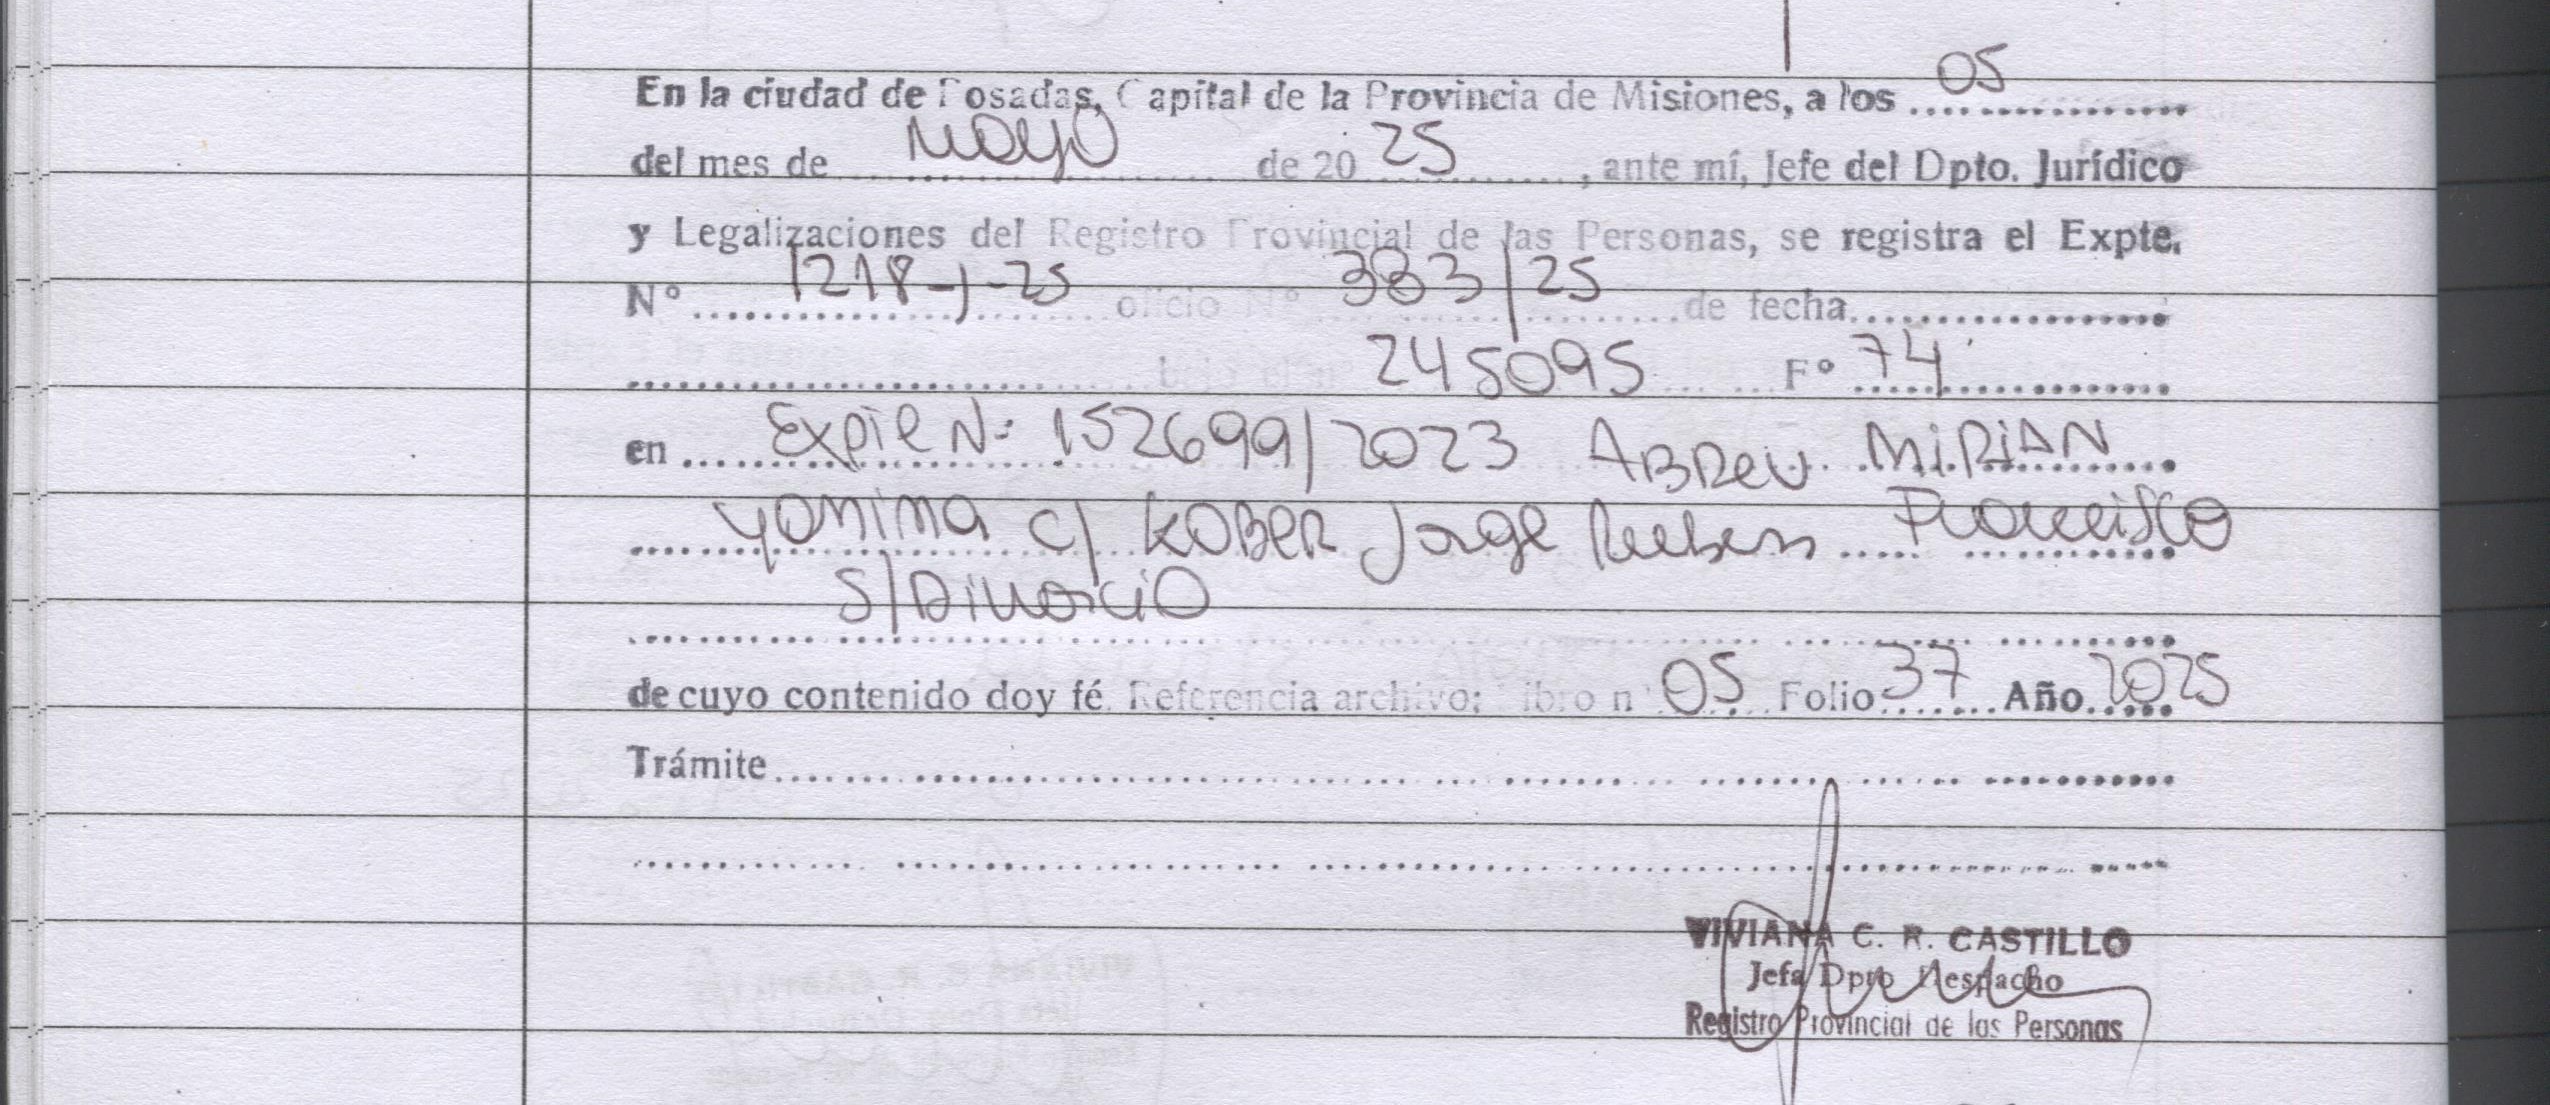 En la ciudad de Posadas, Capital de la Provincia de Misiones, a los 05
del mes de Mayo de 20 25, ante mí, Jefe del Dpto. Jurídico
y Legalizaciones del Registro Provincial de las Personas, se registra el Expte.
Nº 1218-J-25 oficio Nº 383/25 de fecha
245095 Fº 74
en Expte Nº 152699/2023 ABREU MIRIAN
Yanina c/ KOBER Jorge Ruben Francisco
S/Divorcio
de cuyo contenido doy fé. Referencia archivo: Libro nº 05 Folio 37 Año 2025
Trámite
VIVIANA C. R. CASTILLO
Jefa Dpto Despacho
Registro Provincial de las Personas